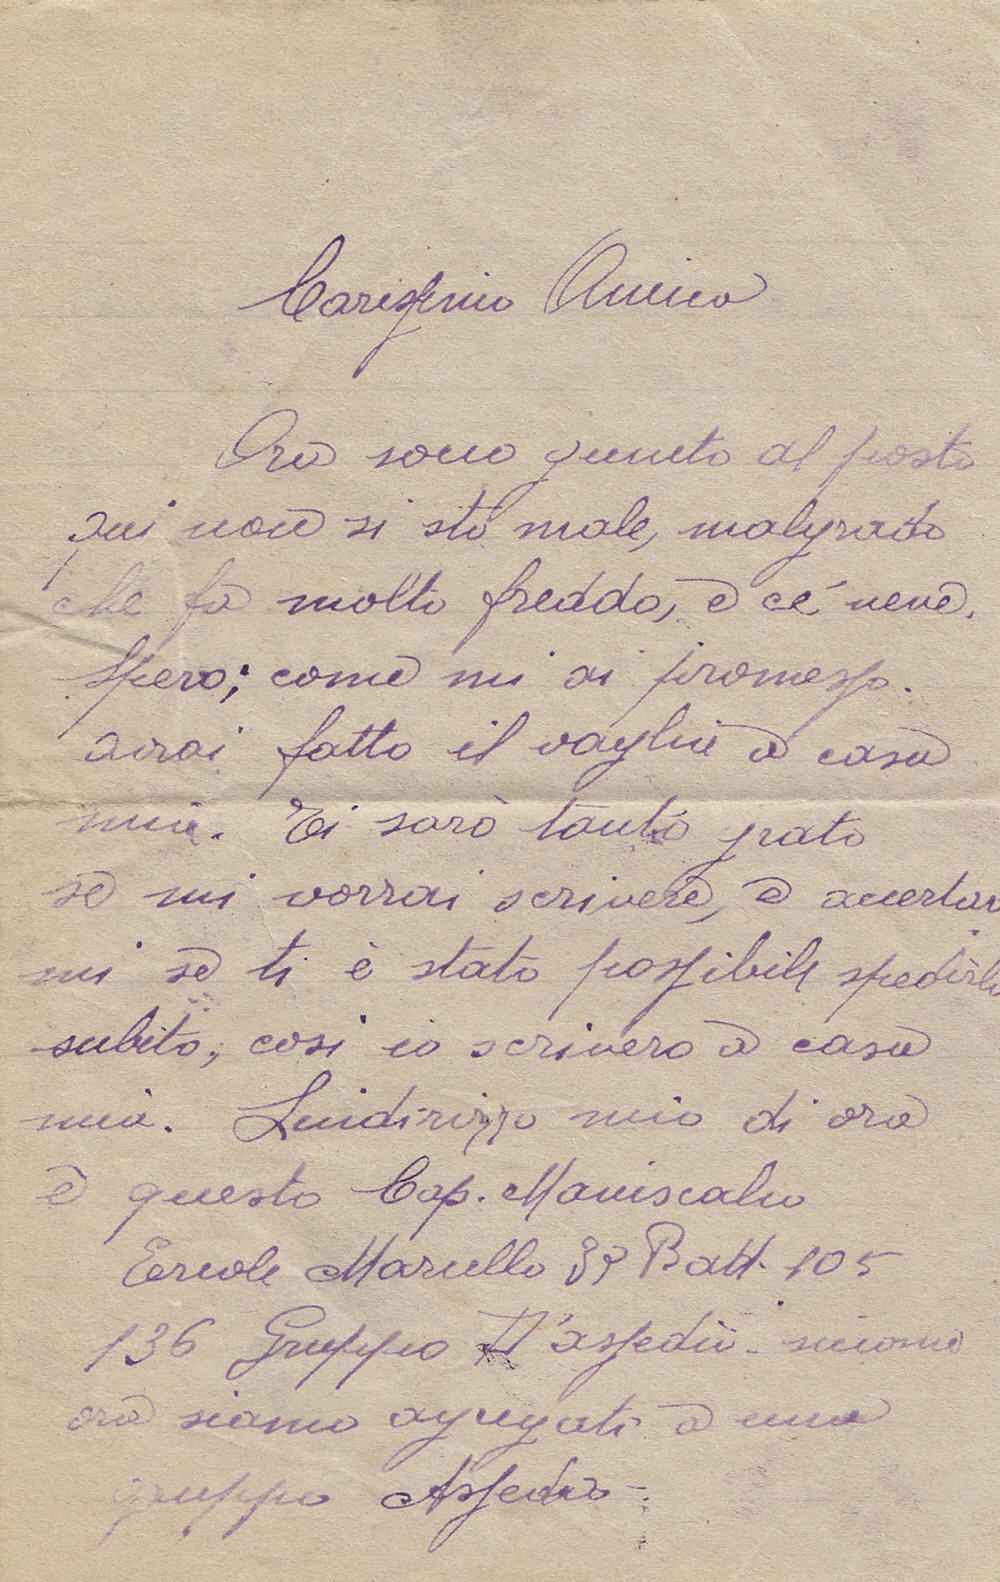 Carissimo Amico
Ora sono giunto al posto
qui non si sta male, malgrado
che fa molto freddo, e cé neve.
Spero; come mi ai promesso.
avrai fatto il vaglia a casa
mia. Ti sarò tanto grato
se mi vorrai scrivere, e accertar
mi se ti è stato possibile spedirlo
subito, cosi io scrivero a casa
mia. Lindirizzo mio di ora
è questo Cap. Maniscalco
Ercole Marcello Batt. 105
136 Gruppo D'assedio. siccome
ora siamo agregati a una
gruppo Assedio.